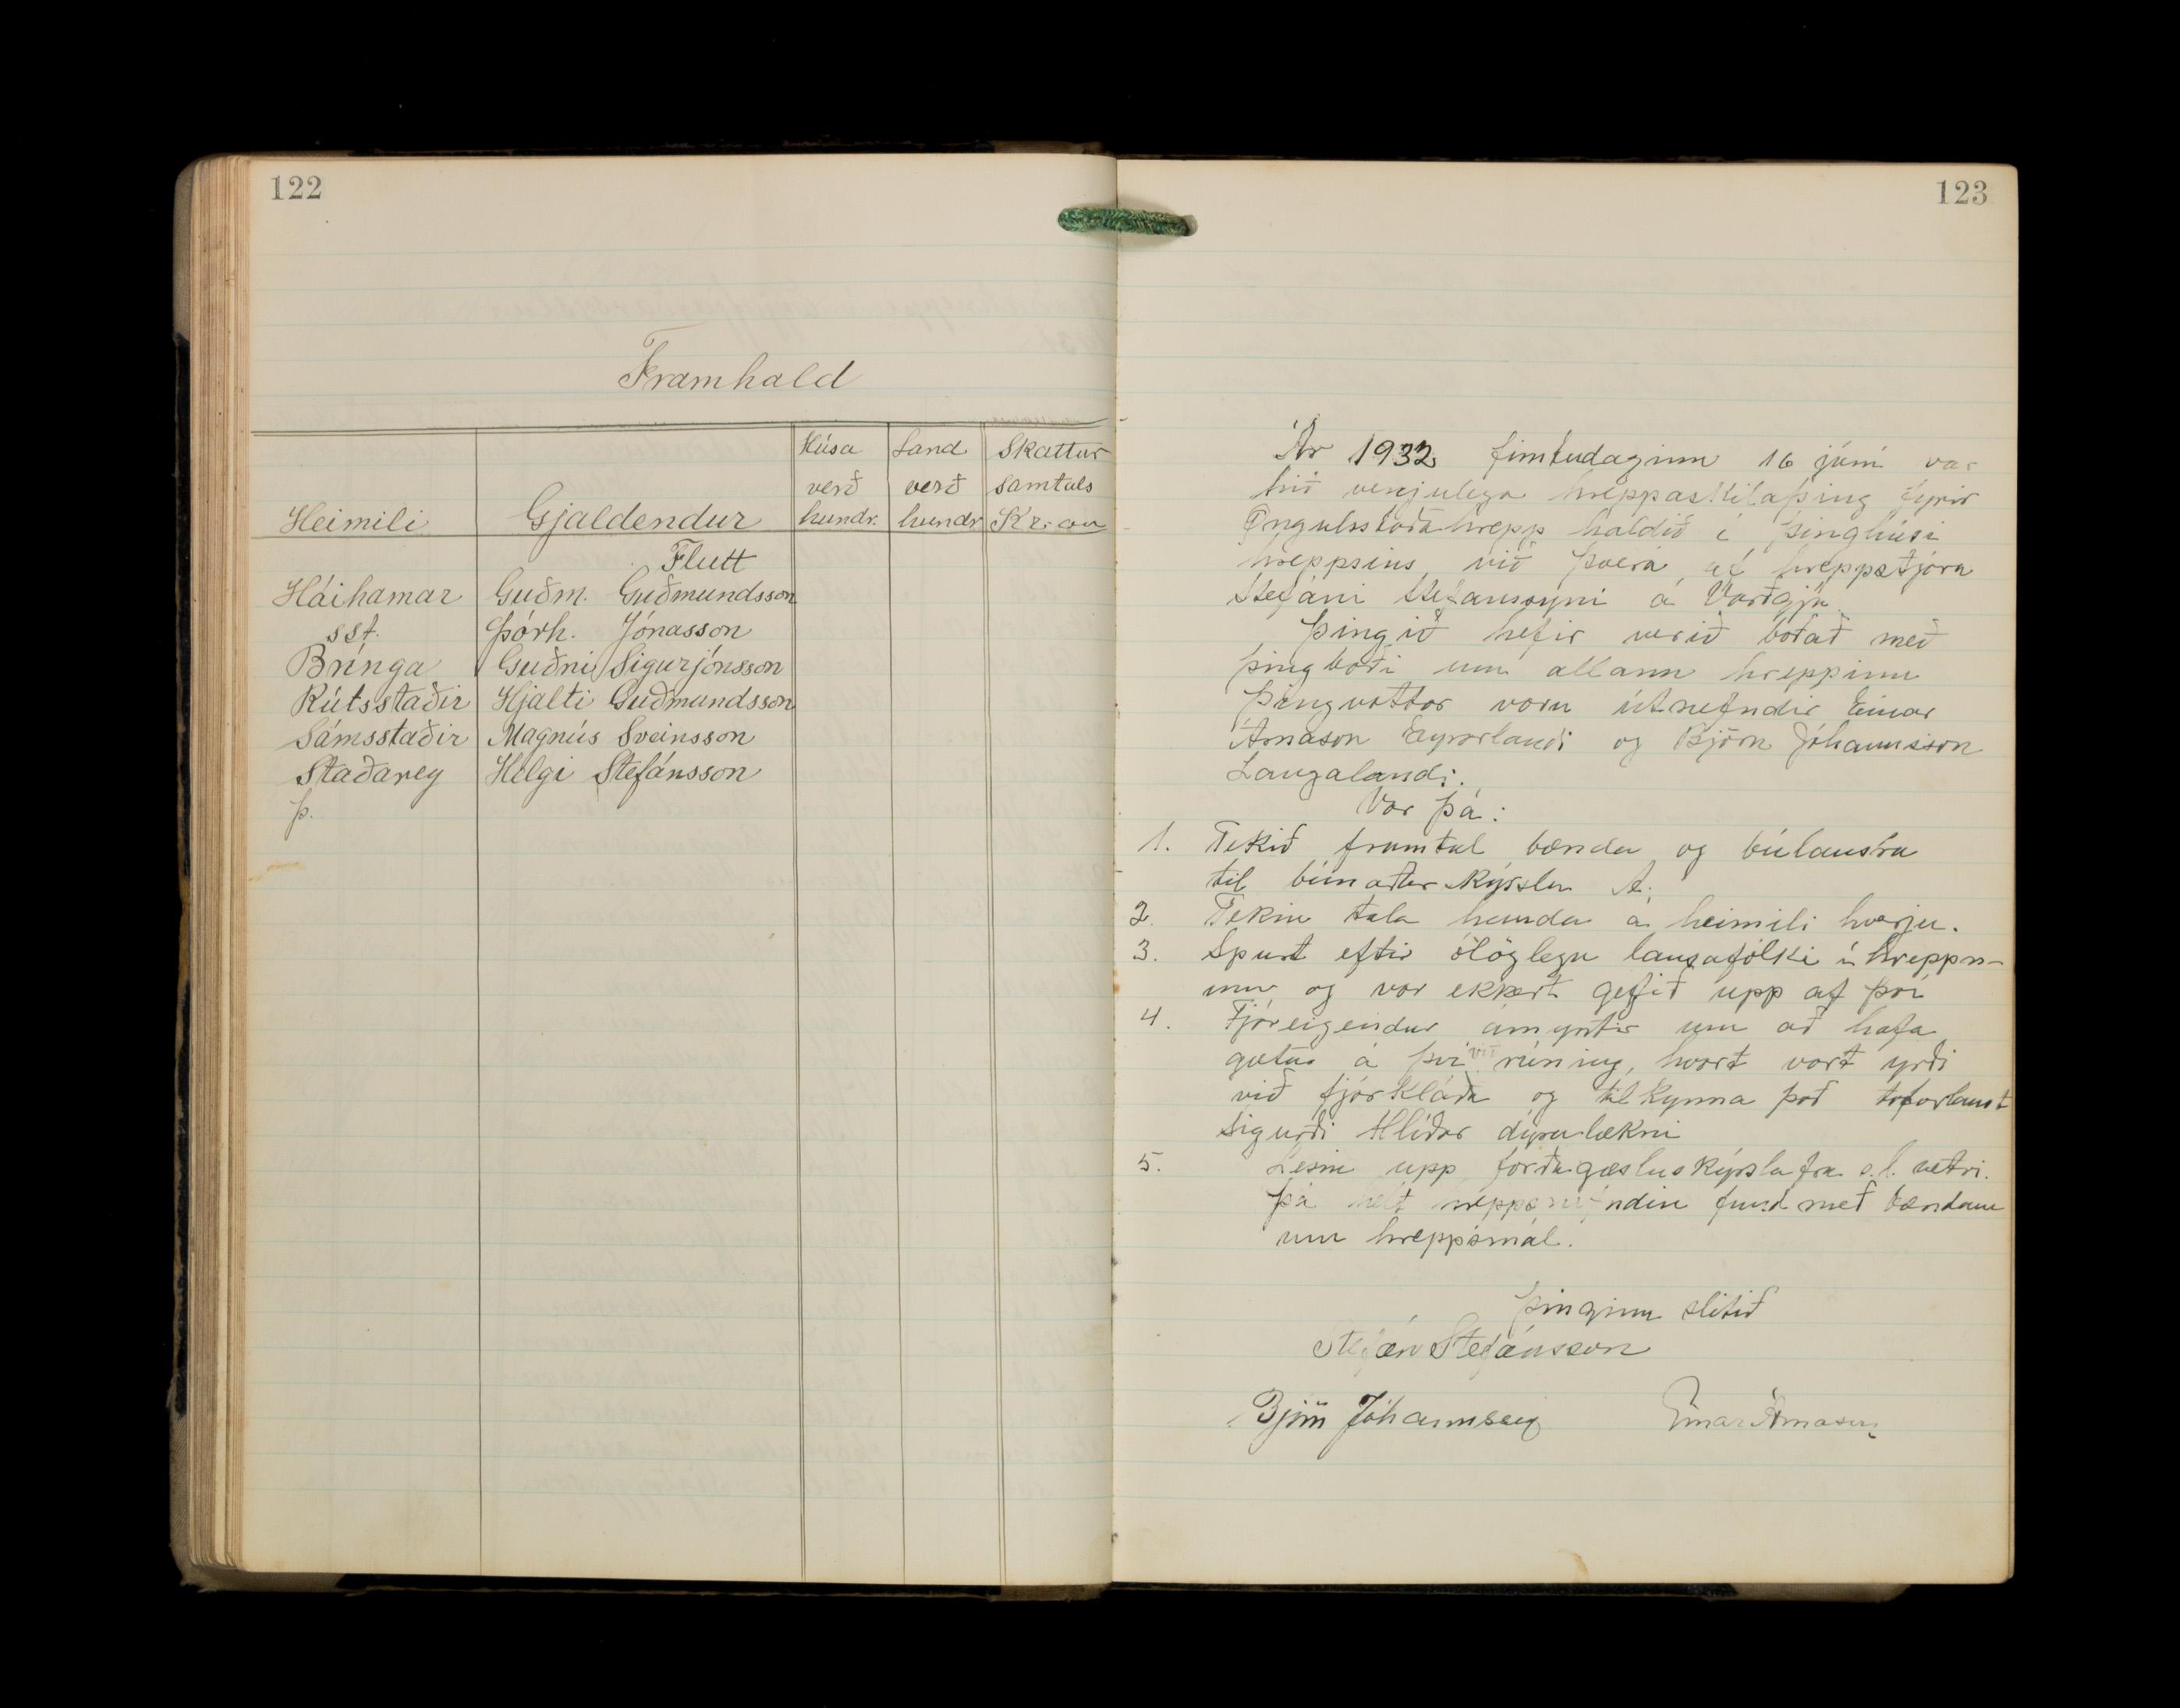 122
Framhald
Heimili Gjaldendur Húsa verð hundr. Land verð hundr. Skattur samtals Kr. au
Flutt
Háihamar Guðm. Guðmundsson
sst. Þórh. Jónasson
Brúnga Guðni Sigurjónsson
Rútsstaðir Hjalti Guðmundsson
Sámsstaðir Magnús Sveinsson
Staðarey Helgi Stefánsson
Þ.
123
Ár 1932 fimtudaginn 16 júní var
hið venjulega hreppaskilaþing fyrir
Öngulsstaðahrepp haldið í þinghúsi
hreppsins við Þverá, af hreppstjóra
Stefáni Stefánssyni á Varðgjá.
Þingið hefir verið boðað með
þingboði um allann hreppinn
Þingvottar voru útnefndir Einar
Árnason Eyrarlandi og Björn Jóhannsson
Laugalandi.
Var þá:
1. Tekið framtal bænda og búlausra
til búnaðarskýrslu A.
2. Tekin tala hunda á heimili hverju.
3. Spurt eftir ólöglegu lausafólki í hreppn-
um og var ekkert gefið upp af því
4. Fjáreigendur ámyntir um að hafa
gætur á því við rúning, hvort vart yrði
við fjárkláða og tilkynna það tafarlaust
Sigurði Hlíðar dýralækni
5. Lesin upp forðagæsluskýrsla frá s.l. vetri.
Þá hélt hreppsnefndin fund með bændum
um hreppsmál.
Þinginu slitið
Stefán Stefánsson
Björn Jóhannsson Einar Árnason